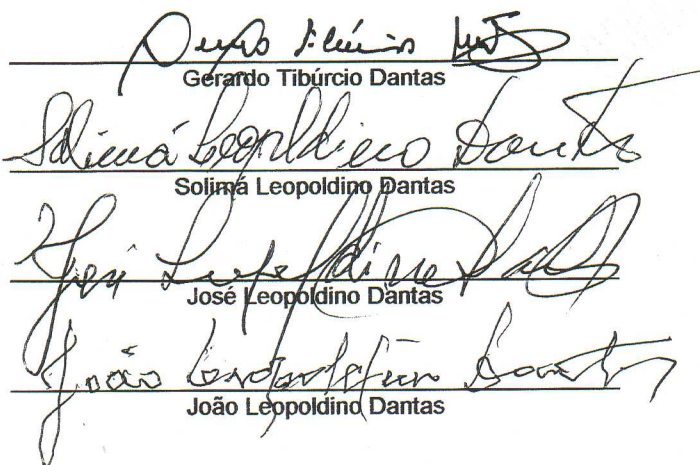 Gerardo Tibúrcio Dantas
Solimá Leopoldino Dantas
Solimá Leopoldino Dantas
José Leopoldino Dantas
José Leopoldino Dantas
João Leopoldino Dantas
João Leopoldino Dantas